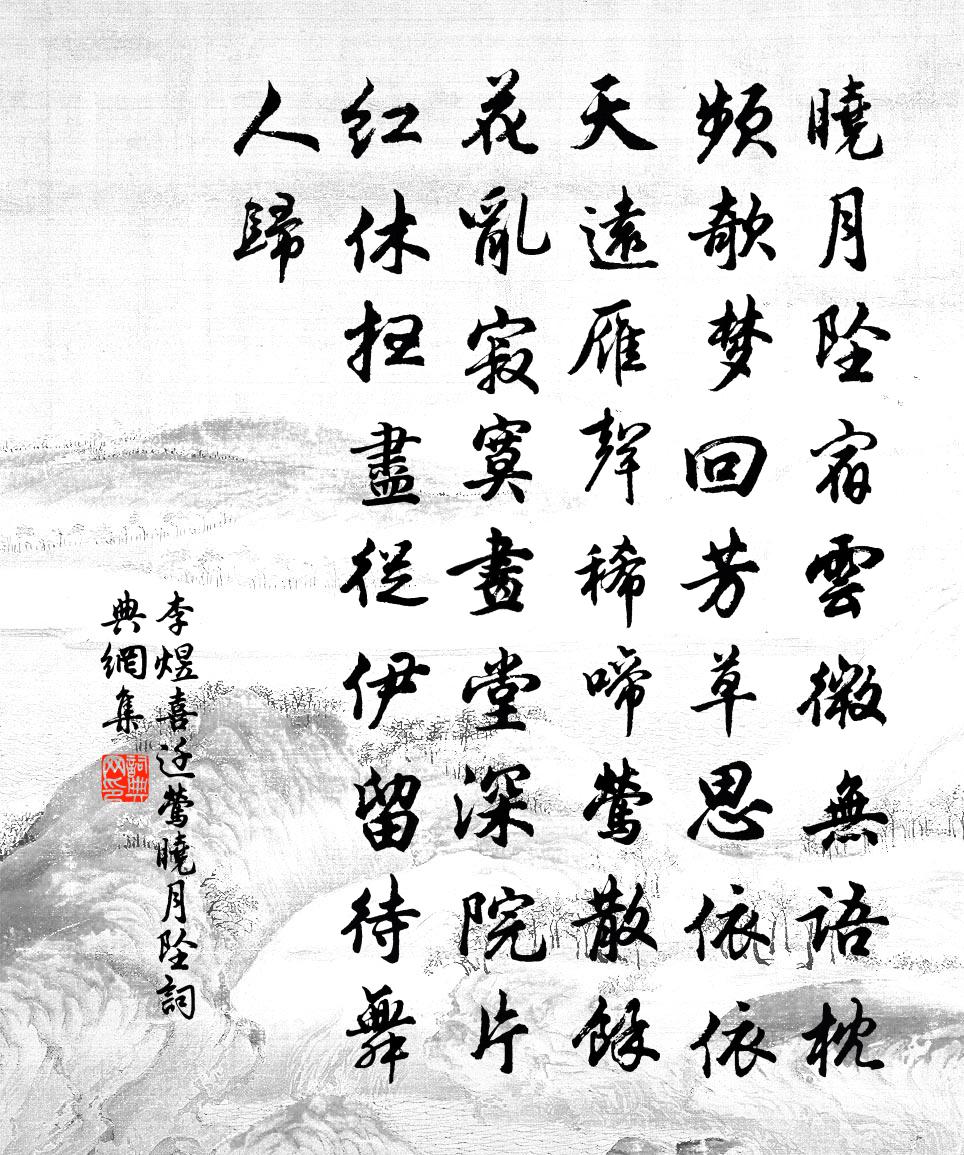 曉月坠宿雲微無語枕
頻欹梦回芳草思依依
天遠雁聲稀啼鶯散餘
花亂寂寞畫堂深院片
红休扫盡從伊留待舞
人歸
李煜喜迁鶯曉月坠詞
典網集
詞典
网印